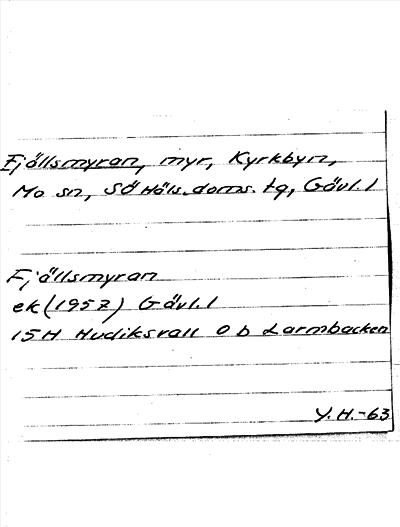 Fjällsmyran, myr, Kyrkbyn,
Mo sn, Sö Häls. doms. tg, Gävl. l
Fjällsmyran
ek (1957) Gävl. l
15H Hudiksvall 0 b Larmbacken
Y. H. -63